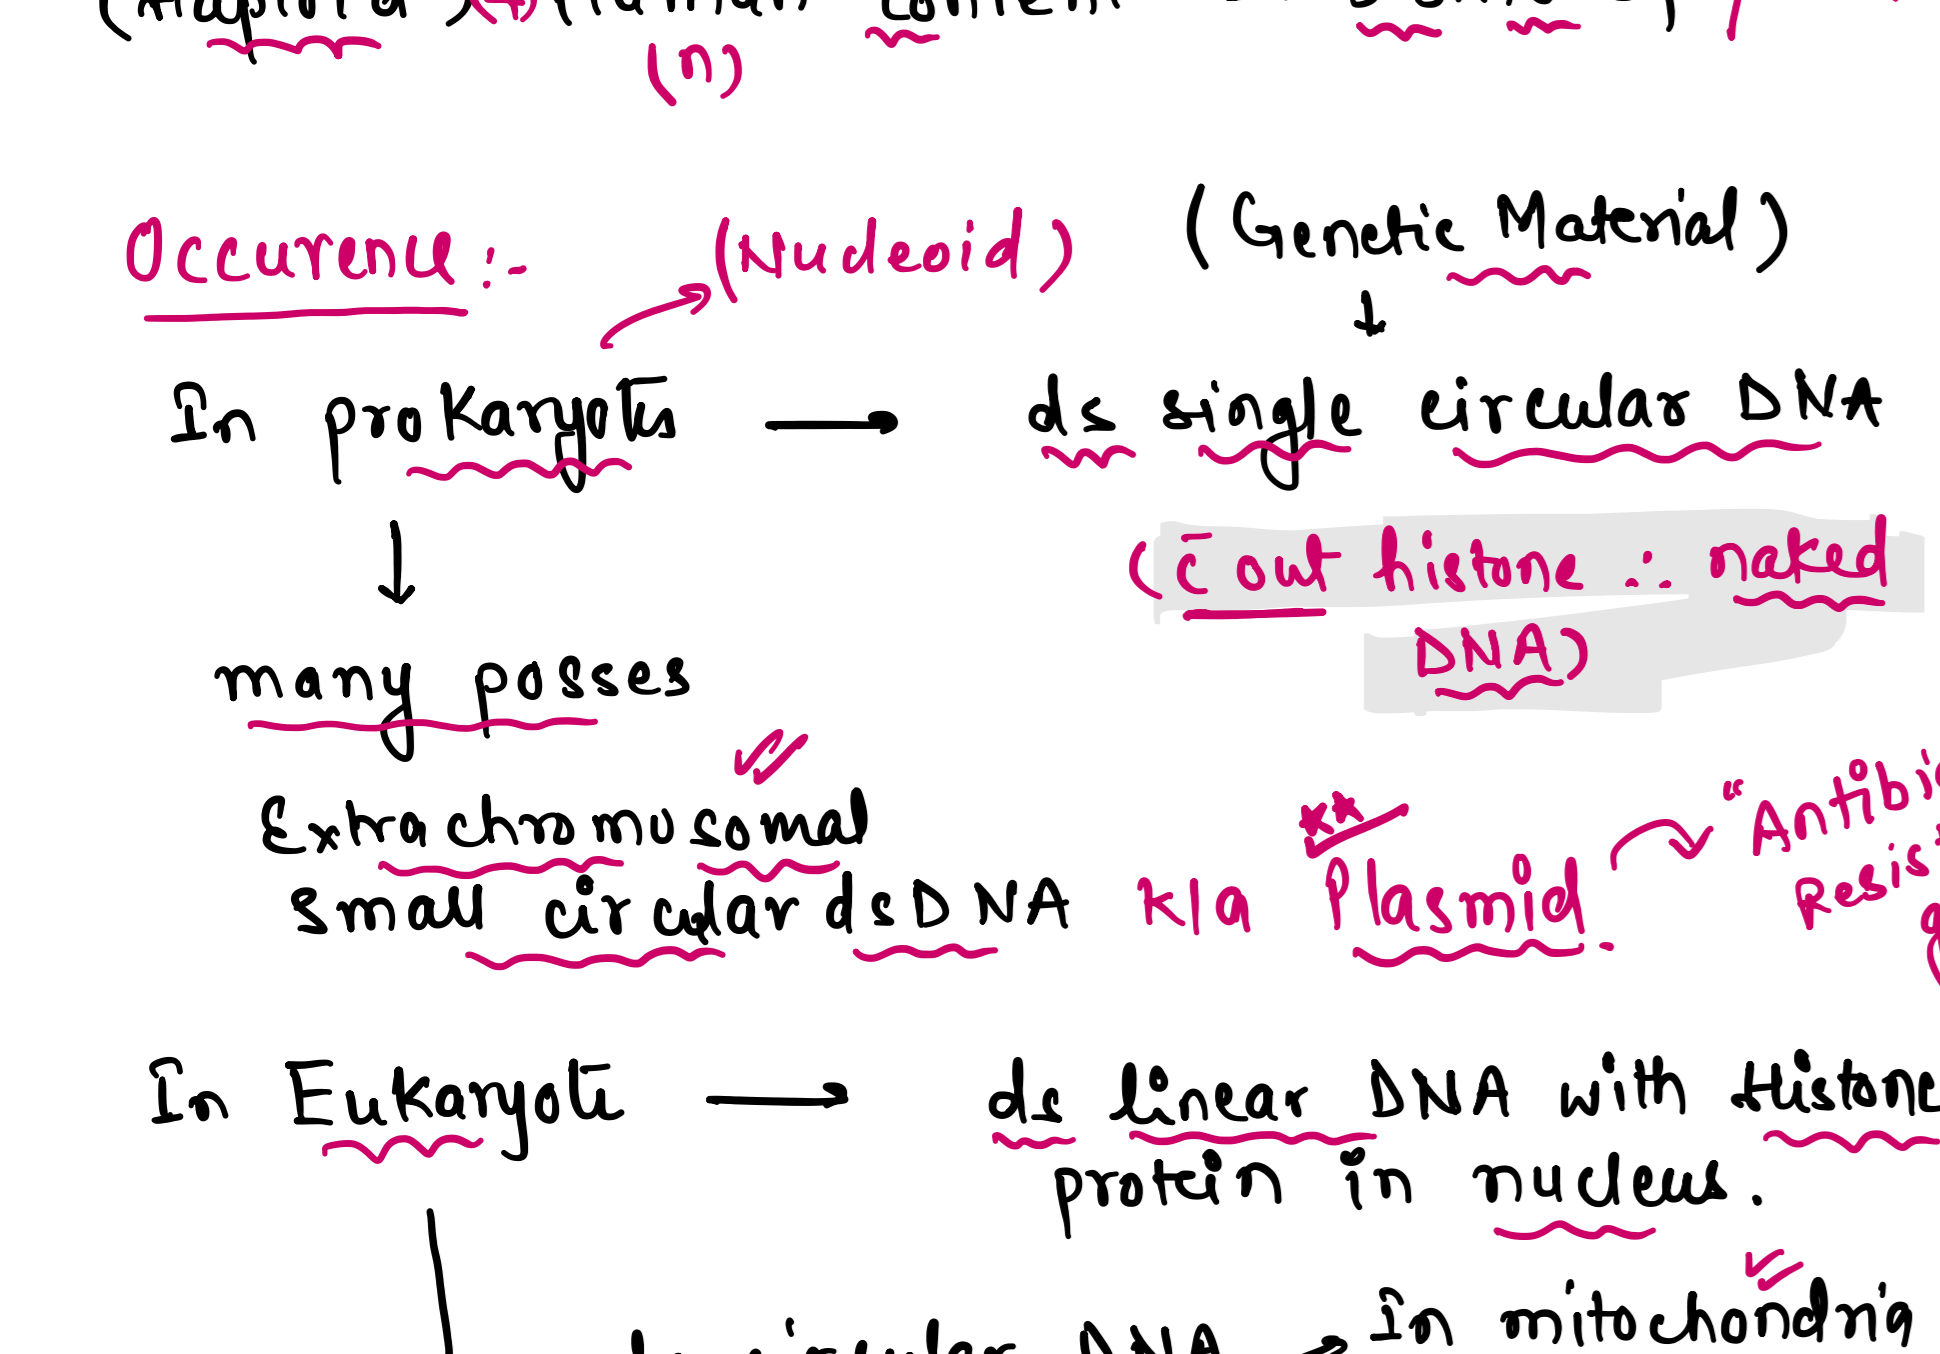 (Haploid) Human content
(n)
Occurence :-
(Nucleoid)
(Genetic Material)
In prokaryotes → ds single circular DNA
(c̄ out histone ∴ naked
DNA)
many posses
Extrachromosomal
small circular dsDNA k/a Plasmid.
"Antibi
Resis
In Eukaryote → ds linear DNA with Histone
protein in nucleus.
circular DNA → In mitochondria